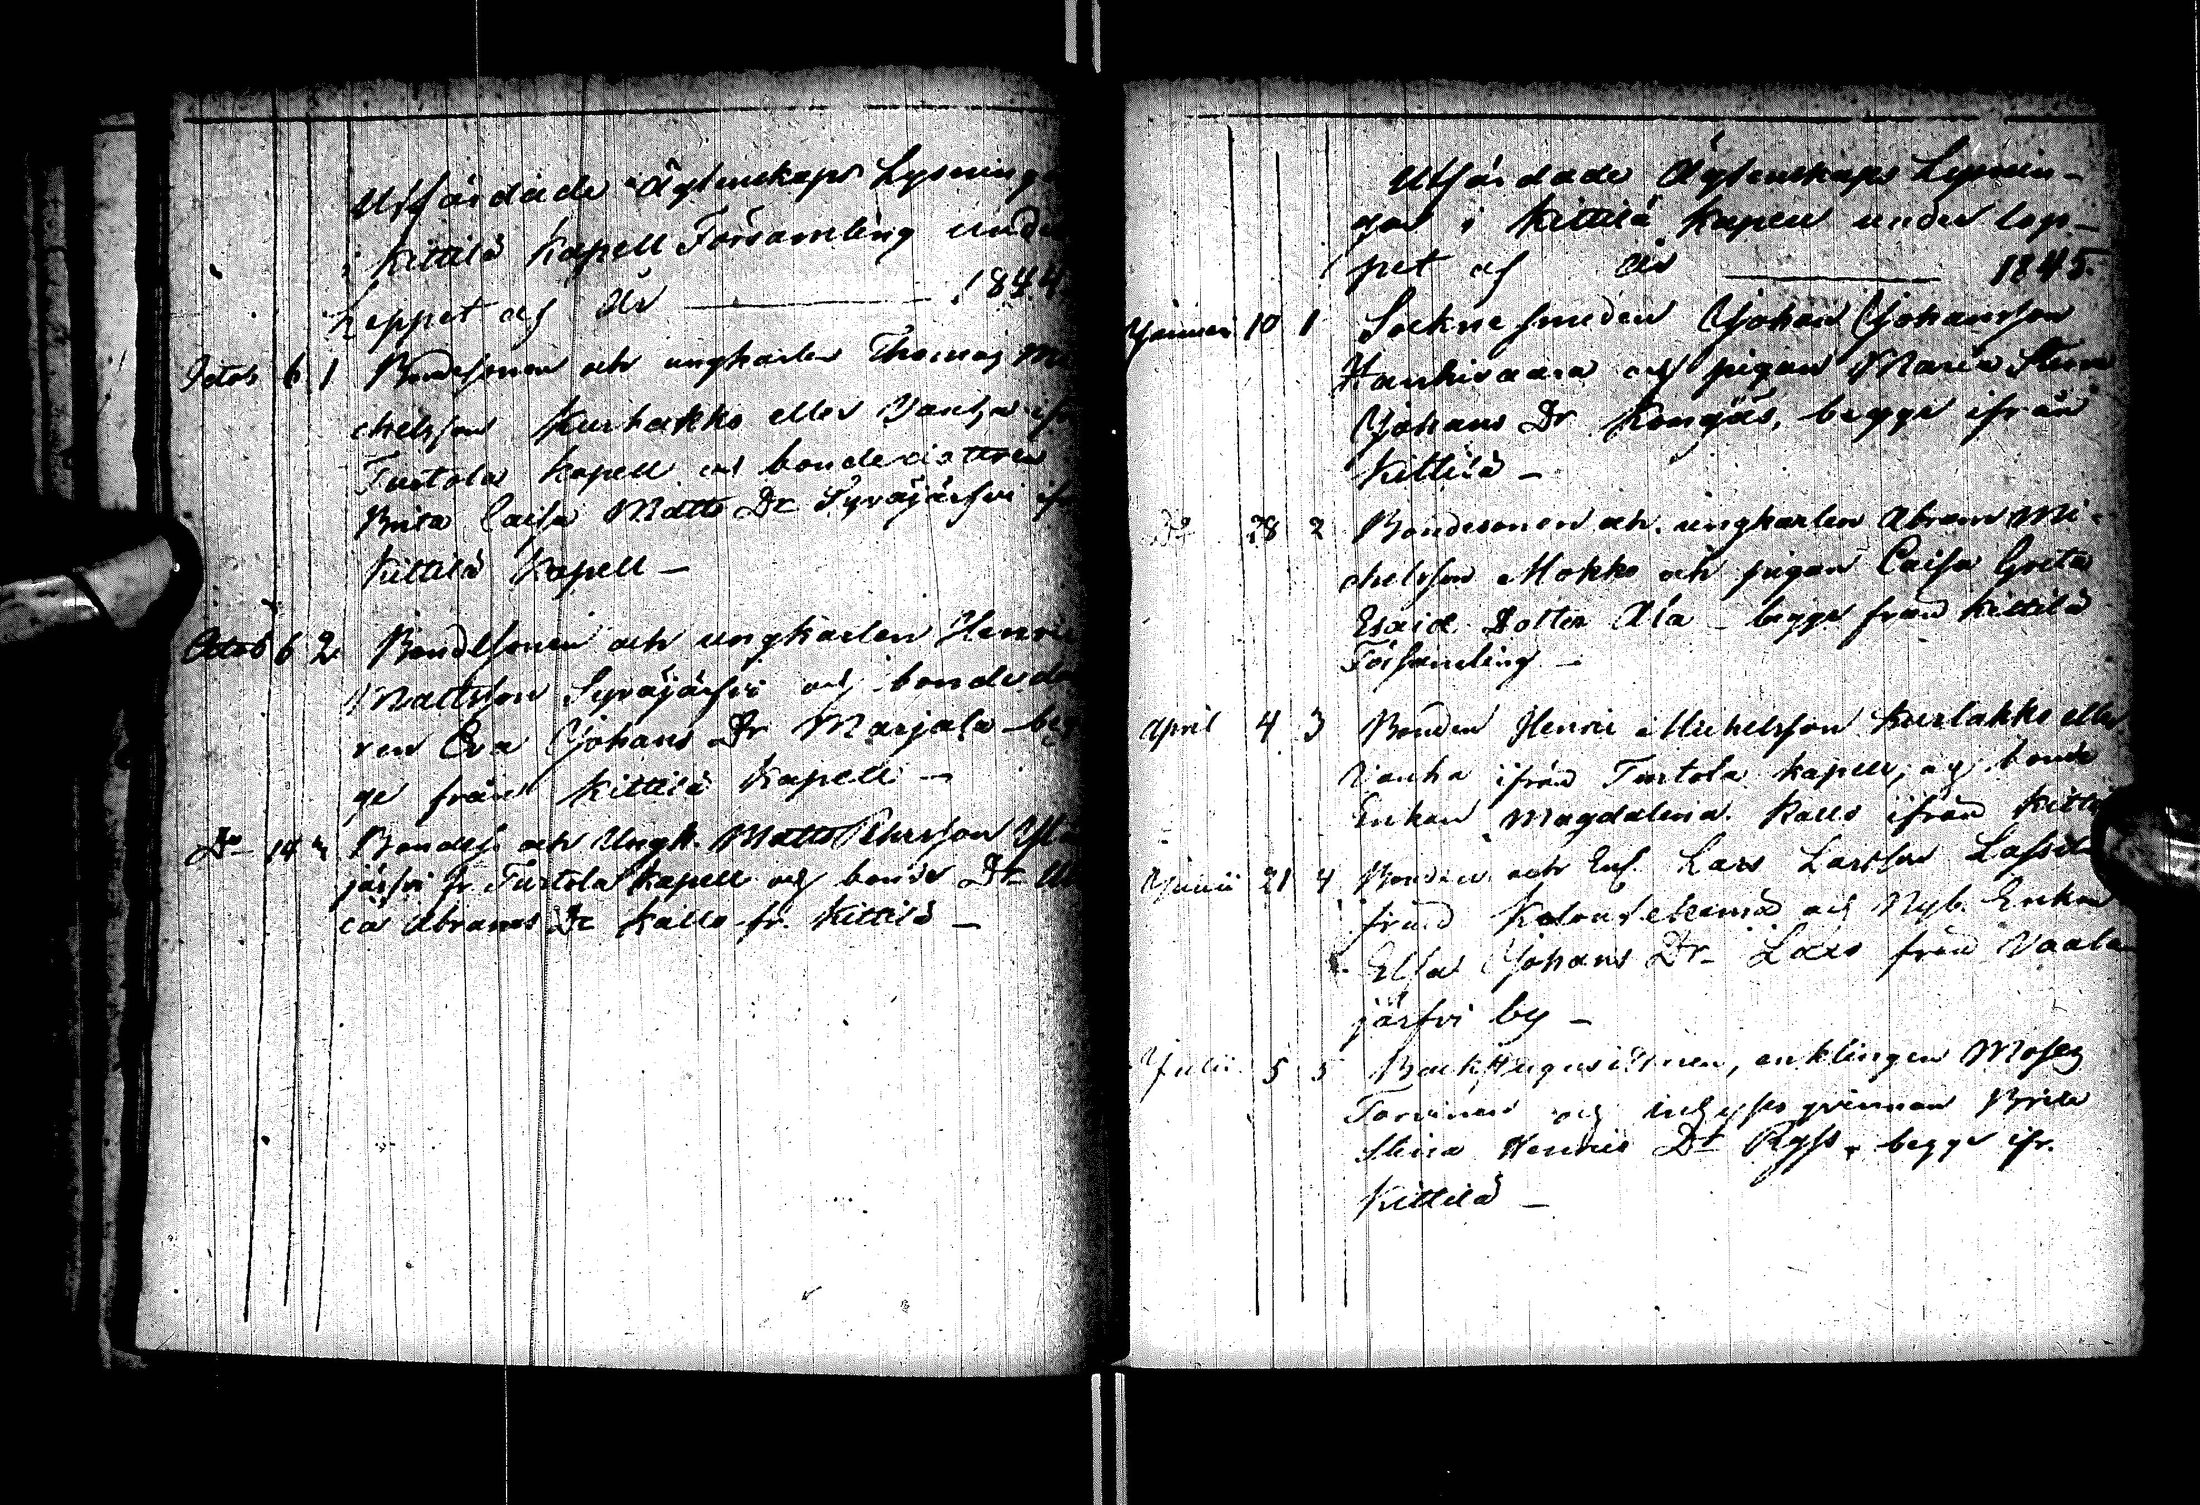 Utfärdade Ägtenskaps Lysninga
i Kittilä Kapell Församling unde
loppet af År — 1844
Octob 6 1 Bondesonen och ungkarlen Thomas Mi
chelsson Kurtakko eller Vanha ifr
Turtola Kapell och bondedottren
Brita Caisa Matts Dr Syväjärfvi ifr
Kittilä Kapell —
Octob 6 2 Bondesonen och ungkarlen Henric
Mattsson Syväjärfvi och bondedo
ren Eva Johans Dr Marjala beg
ge från Kittilä Kapell —
Do 14 3 Bondes. och Ungk. Matts Pehrsson
järfvi fr Turtola Kapell och bonde Dr
ca Abrams Dr Kallo fr. Kittilä —
Utfärdade Ägtenskaps Lysnin-
gar i Kittilä Kapell under lop-
pet af år — 1845.
Januari 10 1 Sockne smeden Johan Johansson
Haukivaara och pigan Maria Stina
Johans Dr Kongäs, begge ifrån
Kittilä —
Do 28 2 Bondesonen och ungkarlen Abram Mi-
chelsson Mokko och pigan Caisa Greta
Esaiæ Dotter Ala — begge från Kittilä
Församling —
April 4 3 Bonden Henric Michelsson Kurtakko eller
Vanha ifrån Turtola kapell, och bonde
Enkan Magdalena Kallo ifrån Kittil
Junii 21 4 Bonden och Enkl. Lars Larsson Lassila
från och Nyb. Enkan
Elsa Johans Dr Lars från Vaala
järfvi by —
Julii 5 5 enklingen Moses
Torvinen och inhyses qvinnan Brita
Stina Henrics Dr Ryss, begge ifr.
Kittilä —